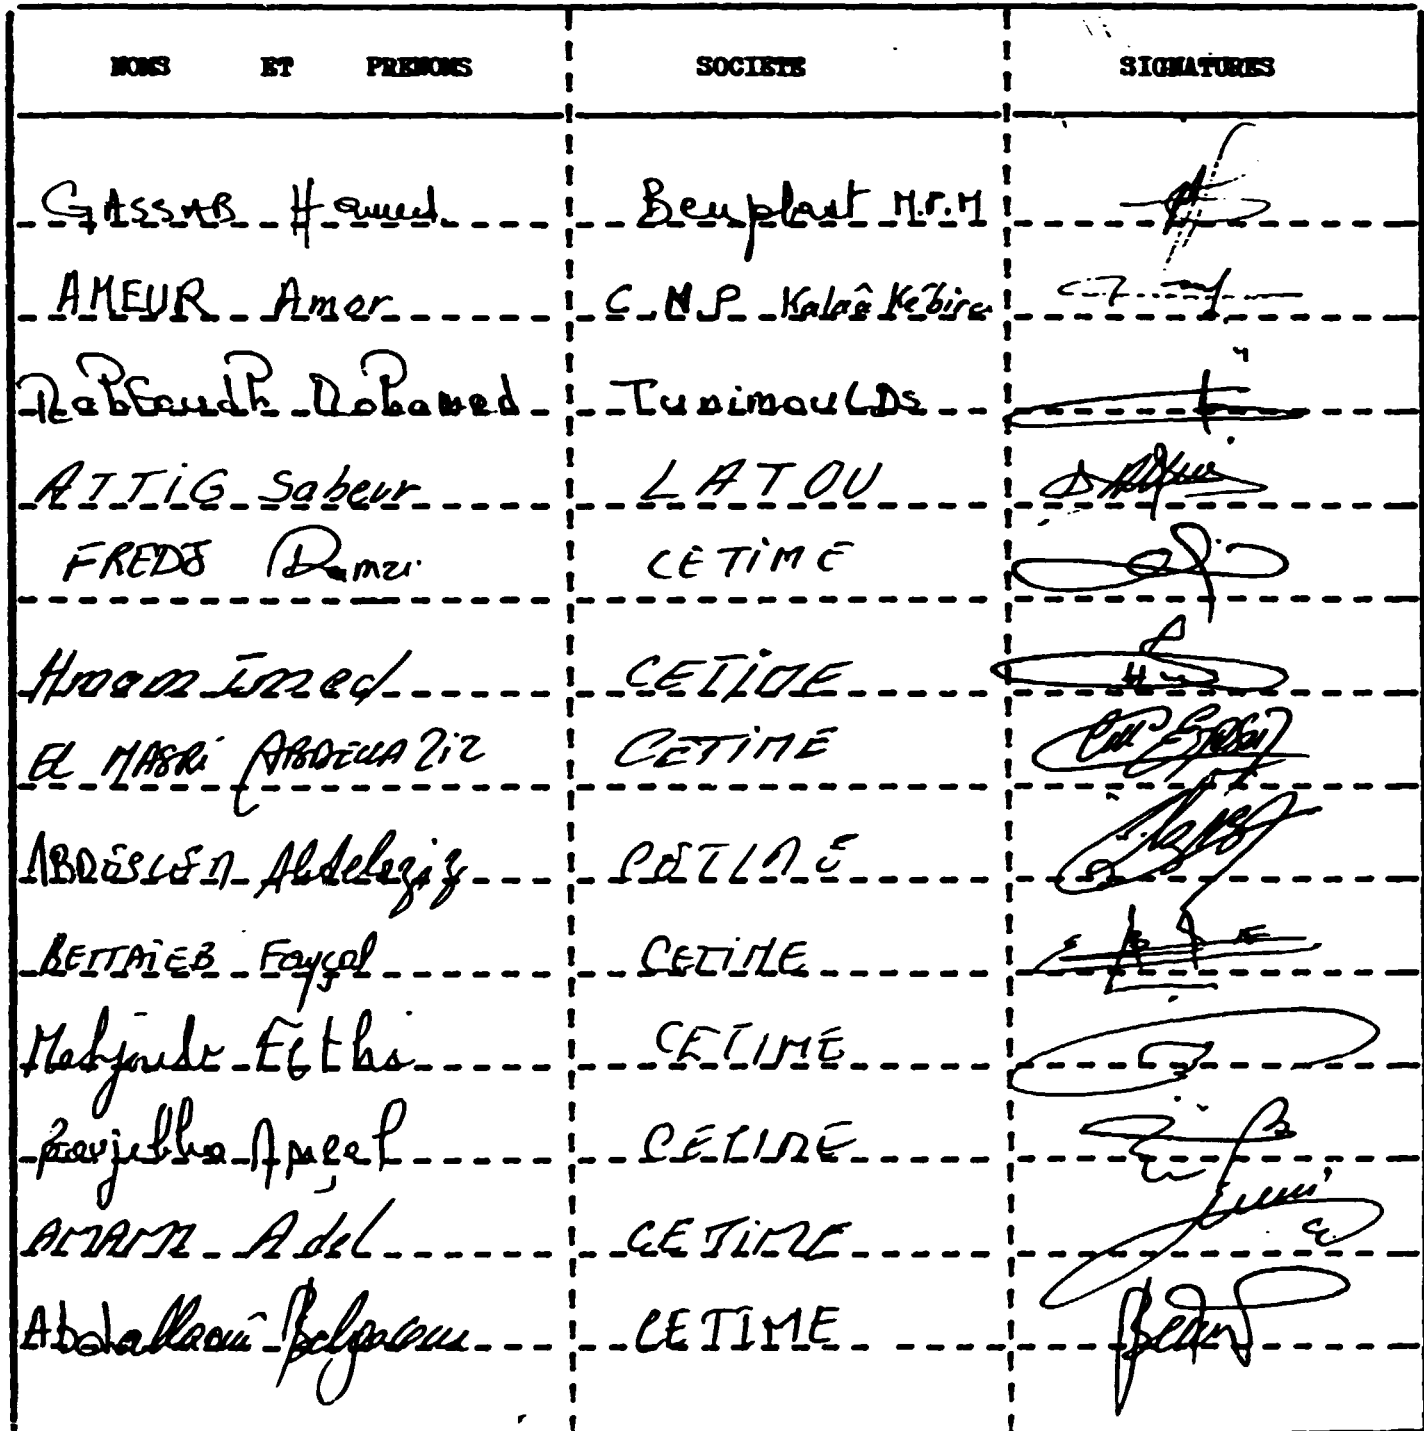 NOMS ET PRENOMS SOCIETE SIGNATURES
GASSAB Hamed Benplast M.P.M
AMEUR Amor C.M.P Kalaâ Kébira
Mohamed Tunimoulds
ATTIG Sabeur LATOU
FREDJ Ramzi CETIME
Hmam Imed CETIME
EL MASRI ABDELLAZIZ CETIME
ABDESLEM Abdelaziz CETIME
BETTAIEB Fayçal CETIME
Mahjoub Fethi CETIME
CETIME
AMAMI Adel CETIME
Abdallaoui Belgacem CETIME